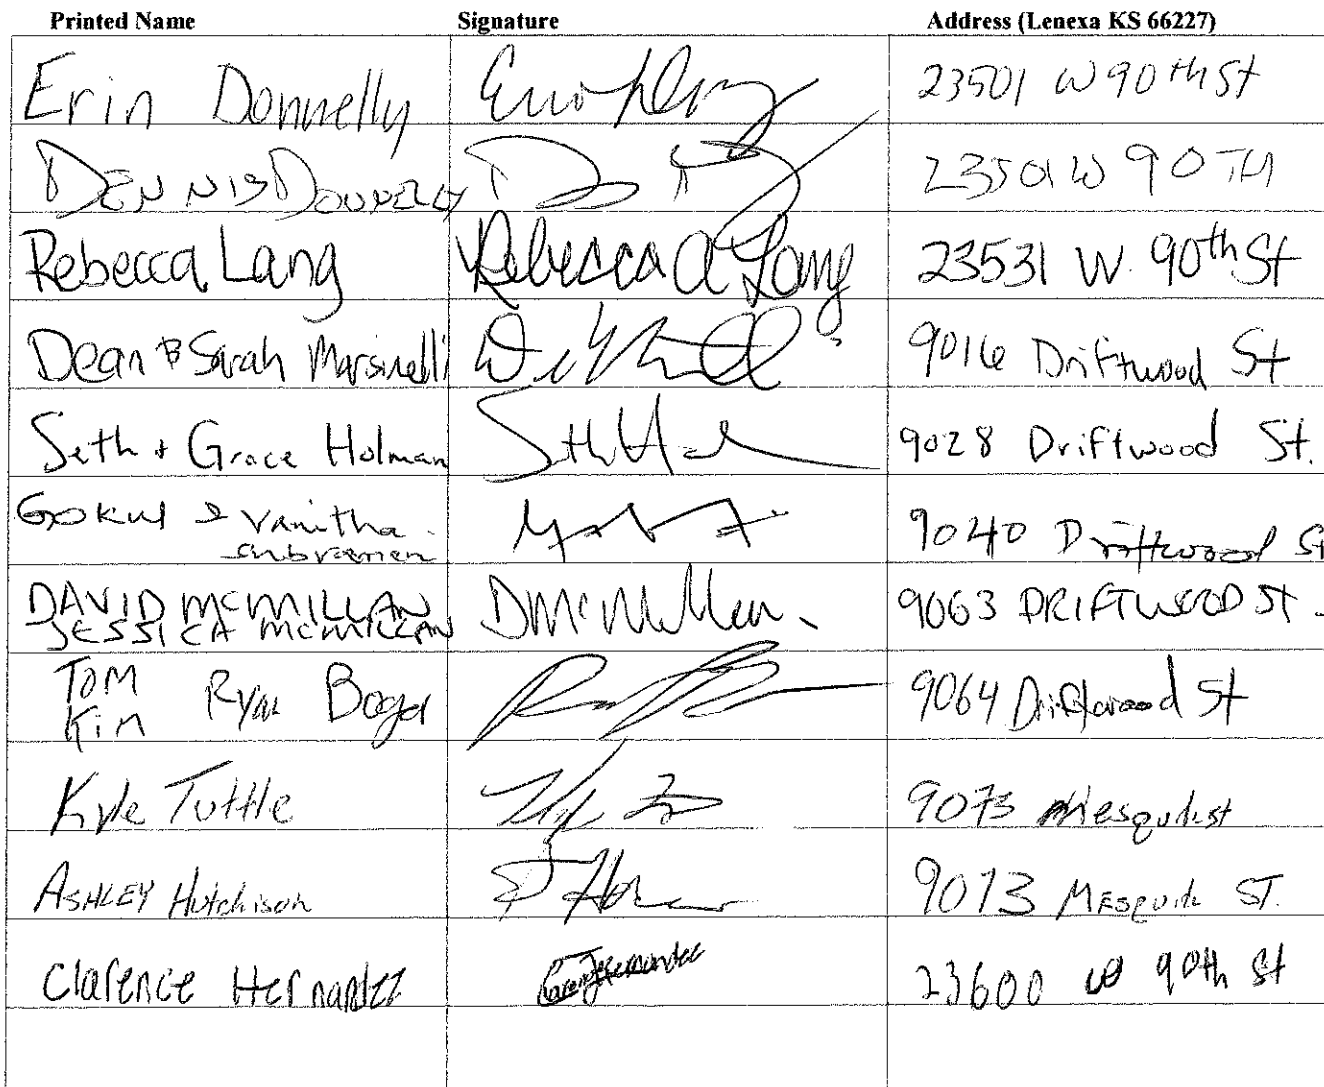 Printed Name Signature Address (Lenexa KS 66227)
Erin Donnelly 23501 W 90th St
DENNIS DONNELLY 23501 W 90TH
Rebecca Lang Rebecca A Lang 23531 W. 90th St
Dean & Sarah Marsinelli 9016 Driftwood St
Seth + Grace Holman 9028 Driftwood St.
Gokul & Vanitha 9040 Driftwood St
DAVID MCMILLAN DMcMillan 9063 DRIFTWOOD St.
JESSICA MCMILLAN
Tom Ryan 9064 Driftwood St
Kim
Kyle Tuttle 9073
ASHLEY Hutchison 9073 ST.
Clarence Hernandez 23600 W 90th St